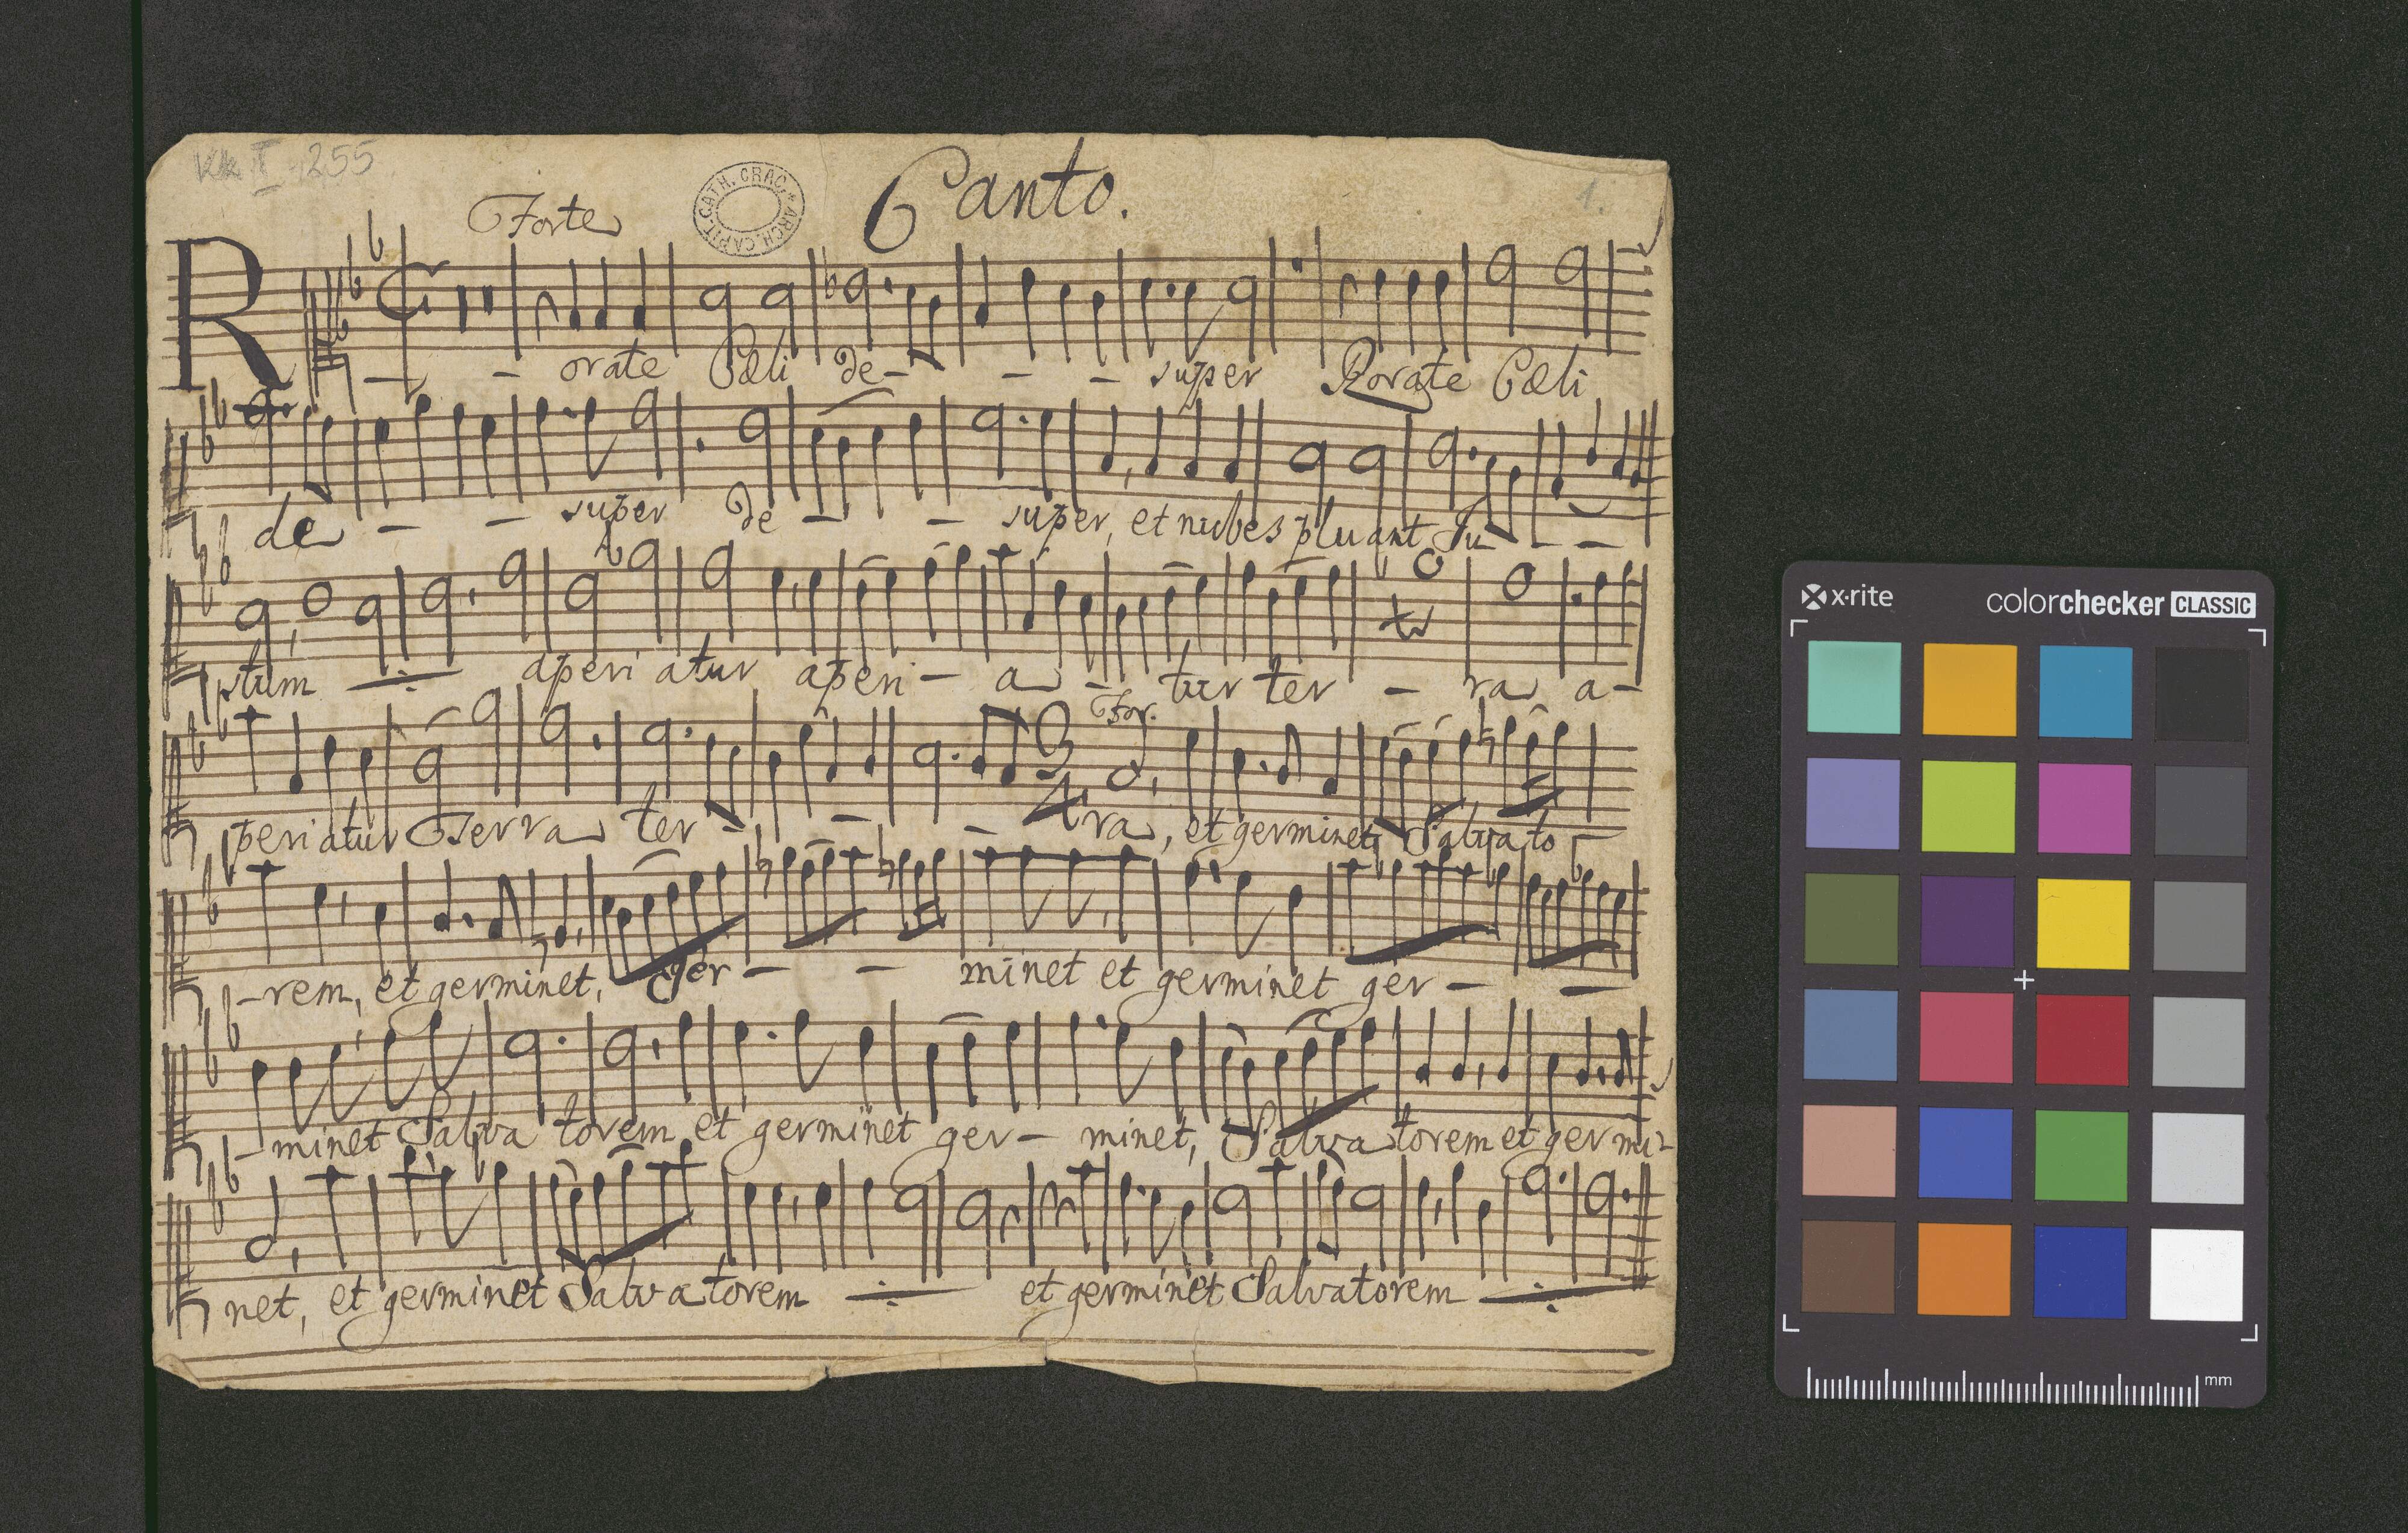 Kk I 255
CATH. CRAC. ARCH. CAPIT.
Canto.
1.
Forte
R — — orate Cæli de — — — super Rorate Cæli
de — — super de — — super, et nubes pluant Ju — —
stum ÷ aperi atur aperi — a — tur ter — ra a —
For.
3
4
peri atur Terra ter — — — ra, et germinet Salvato —
— rem, et germinet, ger — — minet et germinet ger — —
— minet Salva torem et germinet ger — minet, Salva torem et germi-
net, et germinet Salvatorem ÷ et germinet Salvatorem ÷
x·rite
colorchecker CLASSIC
mm